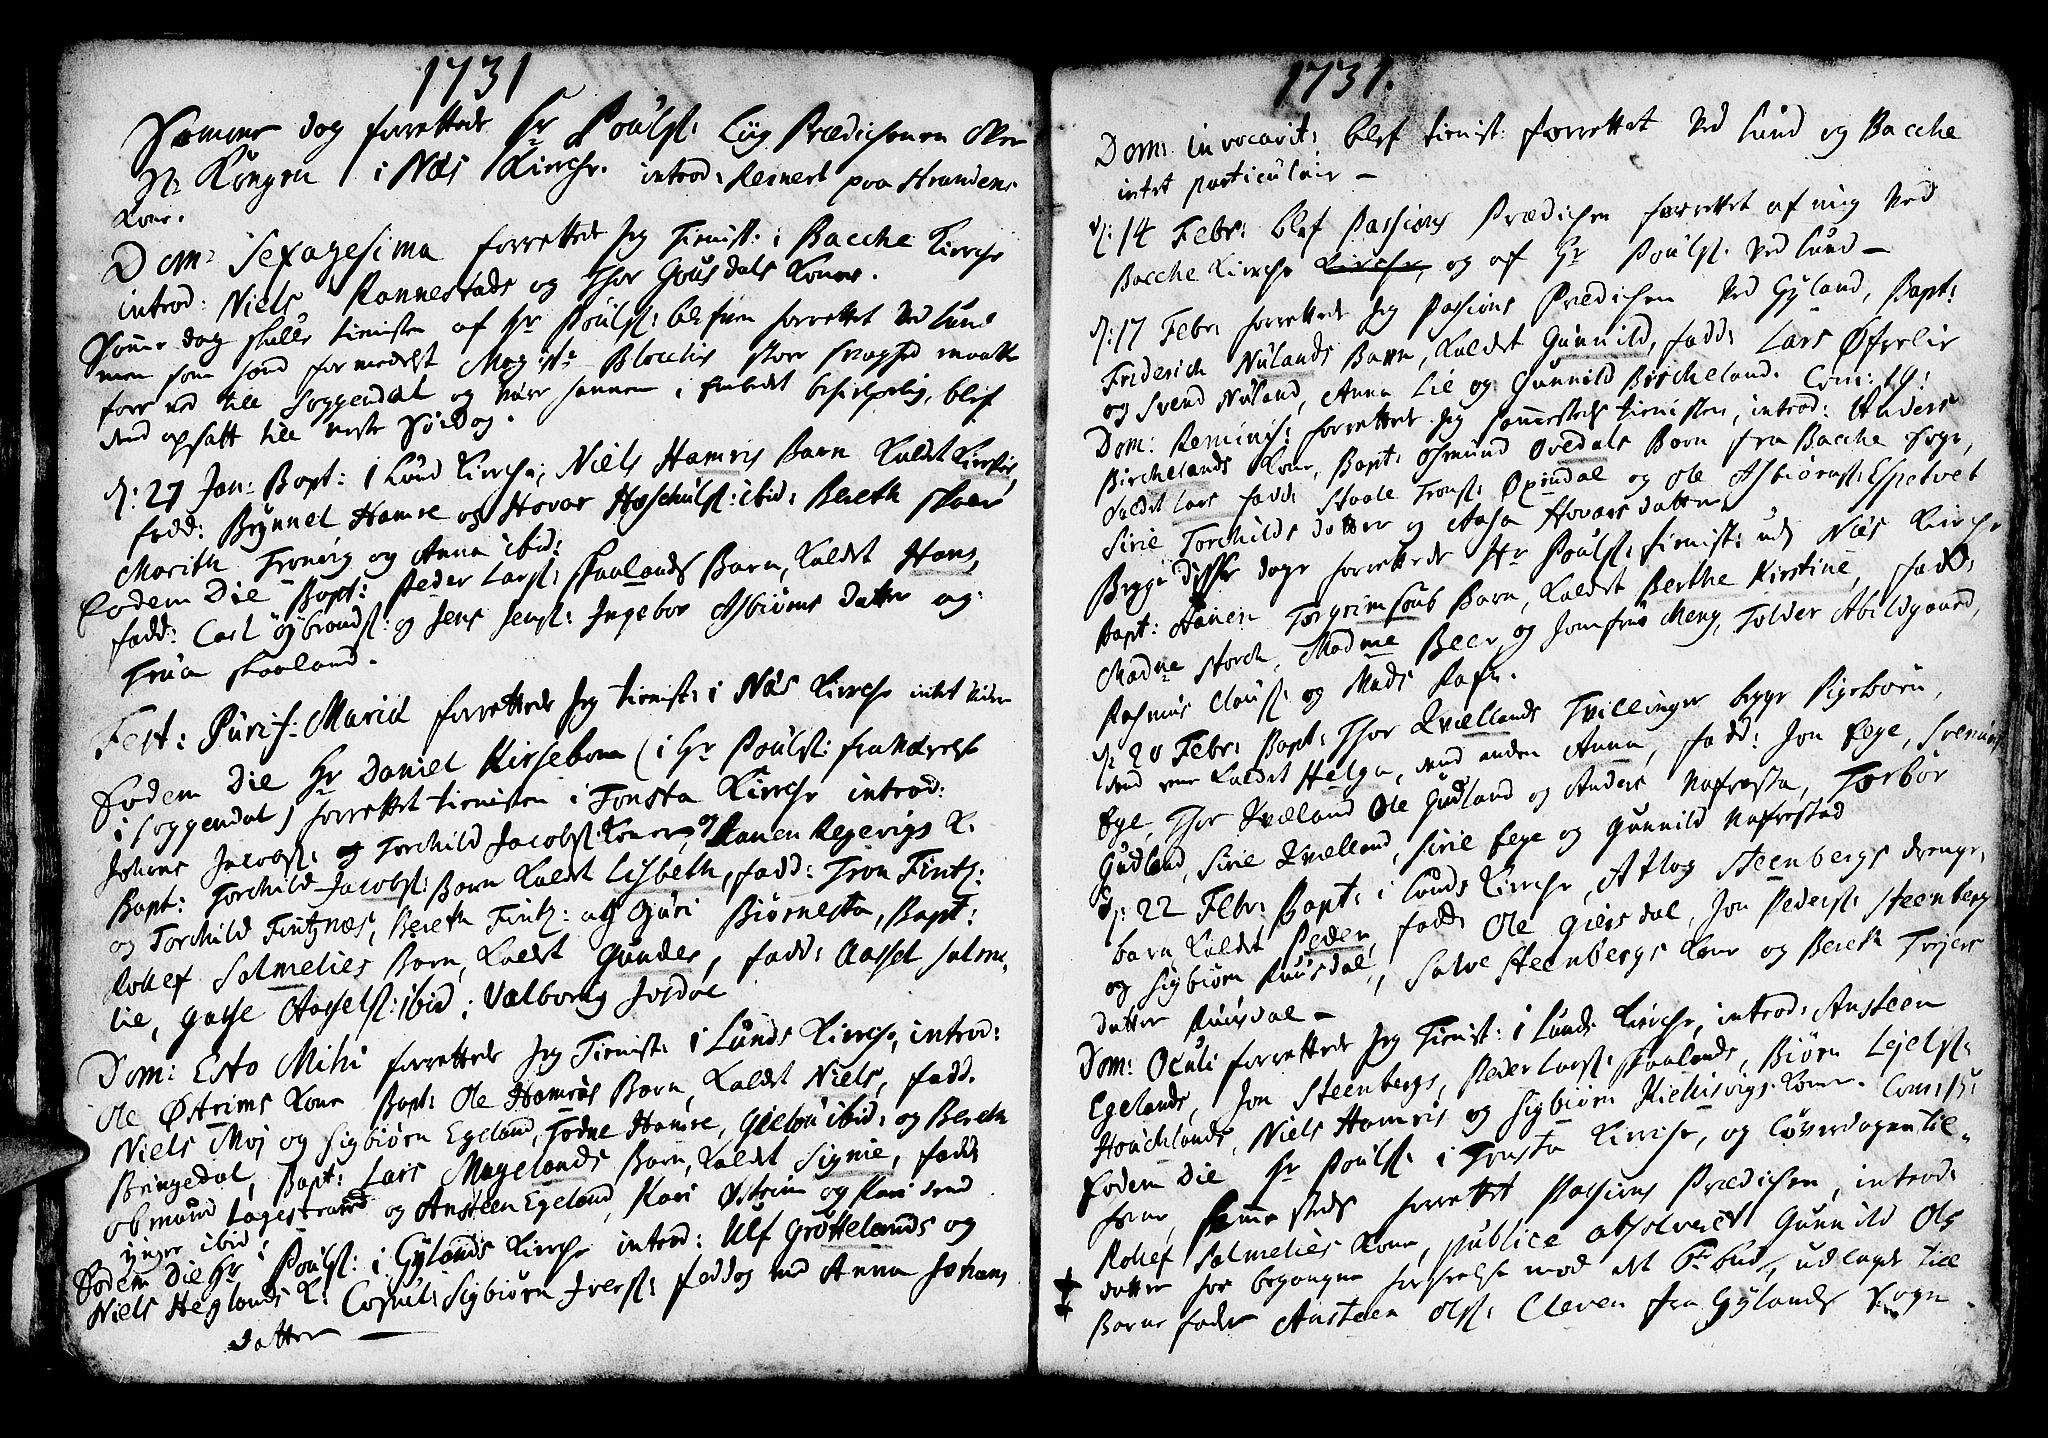 1731
Samme dag forrettede Hr Poülss: Liig Prædichenen ofver
Sl: Kongen i Næs Kirche. introd: Reinert paa Strandens
Kone.
Dom: Sexagesima forrettede Jeg Tienist: i Bacche Kirche
introd: Niels Rannestads og Thor Gousdals Koner.
Samme dag skulle tienisten af Hr Poülss: blefven forrettet ved Lund
men som hand formedelst Magist: Blochis store svaghed maatte
fare ned till Soggendal og være hannem i Embedet behielpelig, blef
dend opsatt till neste Søndag.
d: 27 Jan: Bapt: i Lund Kirche; Niels Hamris Barn Kaldet Kirsten,
fadd: Brynnel Hamre og Hovar Hoschulss: ibid: Bereth
Marith Tronvig og Anna ibid:
Eodem Die Bapt: Peder Larss: Skaalands Barn, Kaldet Hans,
fadd: Carl Gybrandss: og Jens Jenss: Ingebor Asbiørns datter og
Trua Skaaland.
Fest: Purif: Mariæ forrettede Jeg tienist: i Næs Kirche intet videre
Eodem Die Hr Daniel Kirsebom (i Hr Poülss: fraværelse
i Soggendal) forrettet tienisten i Tonsta Kirche introd:
Johans Jacobss: og Torchild Jacobss: Koner, og Ranen Regevigs K.
Bapt: Torchild Jacobss: Barn Kaldet Lisbeth, fadd: Tron Fintz:
og Torchild Fintznæs, Bereth Fintz: og Guri Biørnesta, Bapt:
Rollef Salmelies Barn, Kaldet Gunder, fadd: Aassel Salme-
lie, Gasse Aasselss: ibid: Valborig Josdal
Dom: Esto Mihi forrettede Jeg Tienist: i Lunds Kirche, introd:
Ole Østrims Kone Bapt: Ole Hamres Barn, Kaldet Niels, fadd.
Niels Moj og Sigbiørn Egeland, Todne Hamre, Gielou ibid: og Bereth
Bringedal, Bapt: Lars Mogelands Barn, Kaldet Signie, fadd:
Obmund Lagestrand og Ansteen Egeland, Kari Østrim og Kari dend
yngre ibid:
Eodem Die Hr Poülss: i Gylands Kirche introd: Ulf Grøttelands og
Niels Heglands K: Copul: Sigbiørn Iverss: Feddog med Anna Johans
datter —
1731.
Dom: invocavit: blef tienist: forrettet ved Lund og Bacche
intet particulair —
d: 14 Febr: blef Passions Prædichen forrettet af mig ved
Bacche Kirche Kirche, og af Hr Poülss: ved Lund —
d: 17 Febr: forrettede Jeg Passions Prædichen ved Gyland, Bapt:
Friderich Nulands Barn, Kaldet Gunnild, fadd: Lars Øfrelie
og Svend Nuland, Anna Lie og Gunnild Bircheland. Com: 19:
Dom: Reminis: forrettede Jeg sammesteds tienisten, introd: Anders
Birchelands Kone, Bapt: Osmund Ovedals Barn fra Bacche Sogn,
Kaldet Lars fadd: Staale Tronss: Øxindal og Ole Asbiørnss: Espetvet
Sirie Torchilds datter og Aasa Hovars datter
Begge disse dage forrettede Hr Poülss: tienist: udj Næs Kirche
Bapt: Hanen Torgrimsons Barn, Kaldet Berthe Kirstine, fadd:
Madme Storch, Madme Beer og Jomfrue Meng, Tolder Abildgaard,
Rasmus Clauss: og Mads Rafn.
d: 20 Febr: Bapt: Thor Kvællands Tvillinger begge Pigebørn,
dend ene Kaldet Helga, dend anden Anna, fadd: Jon Ege, Svenung
Ege, Thor Kvælland Ole Gudland og Anders Nafresta, Torbor
Gudland, Sirie Kvælland, Sirie Ege og Gunnild Nafrestad
d: 22 Febr: Bapt: i Lunds Kirche, Atlog Steenbergs drenge-
barn Kaldet Peder, fadd: Ole Giersdal, Jon Pederss: Steenberg
og Sigbiørn Ruusdal, Salve Steenbergs Kone og Bereth Tryers
datter Ruusdal —
Dom: Oculi forrettede Jeg Tienist: i Lunds Kirche, introd: Ansteen
Egelands, Jon Steenbergs, Peder Larss: Skaalands, Biørn Lejelss:
Houchlands, Niels Hamris og Sigbiørn Kiellisvigs Koner. Com:
Eodem Die Hr Poülss: i Tonsta Kirche, og Løverdagen til-
forne, samme steds forrettet Passions Prædichen, introd:
Rollef Salmelies Kone, publice absolveret Gunnild Ols
datter for begangne forseelse mod det 6te bud, udlagt till
Barne fader Ansteen Olss: Cleven fra Gylands Sogn